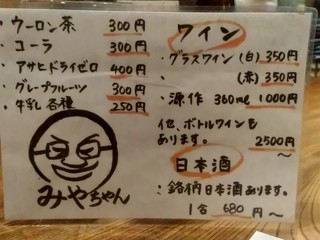 ・ウーロン茶 300円
・コーラ 300円
・アサヒドライゼロ 400円
・グレープフルーツ 300円
・牛乳 各種 250円
みやちゃん
ワイン
・グラスワイン (白) 350円
・ (赤) 350円
・源作 360ml 1000円
他、ボトルワインも
あります。 2500円～
日本酒
・銘柄日本酒あります。
1合 680円～